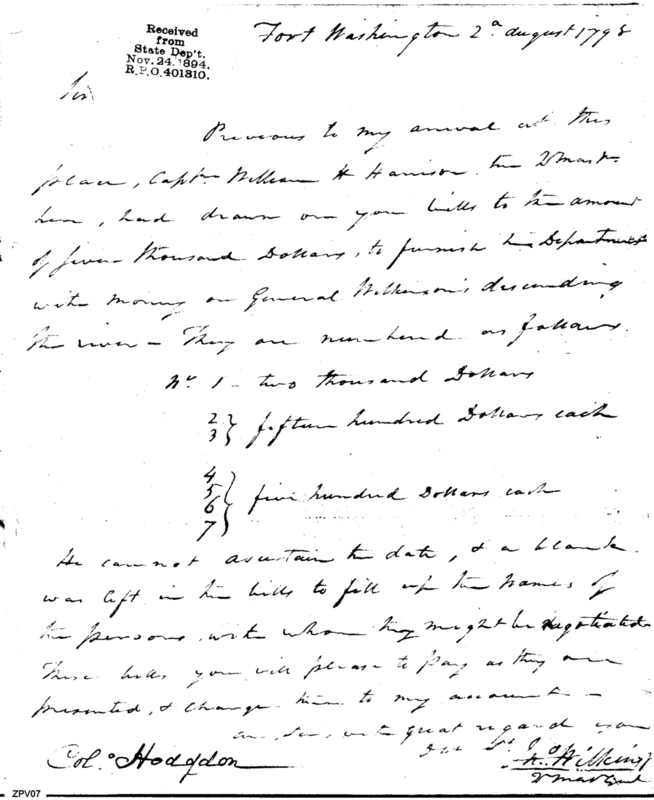 Received
from
State Dep't.
Nov. 24. 1894.
R.P.O. 401310.
Fort Washington 2d august 1798
Sir
Previous to my arrival at this
place, Captn William H Harrison the QMastr
here, had drawn on you bills to the amount
of seven thousand Dollars, to furnish his Department
with money on General Wilkinson's descending
the river – They are numberd as follows.
No 1 – two thousand Dollars
2 } fifteen hundred Dollars each
3
4
5 } five hundred Dollars each
6
7
He cannot ascertain the date, & a blank
was left in the bills to fill up the names of
the persons with whom they might be negotiated
These bills you will please to pay as they are
presented, & charge them to my account –
am, Sir, with great regard your
Obt St Jno Wilkins Jr
QMast Genl
Colo Hodgdon
ZPV07